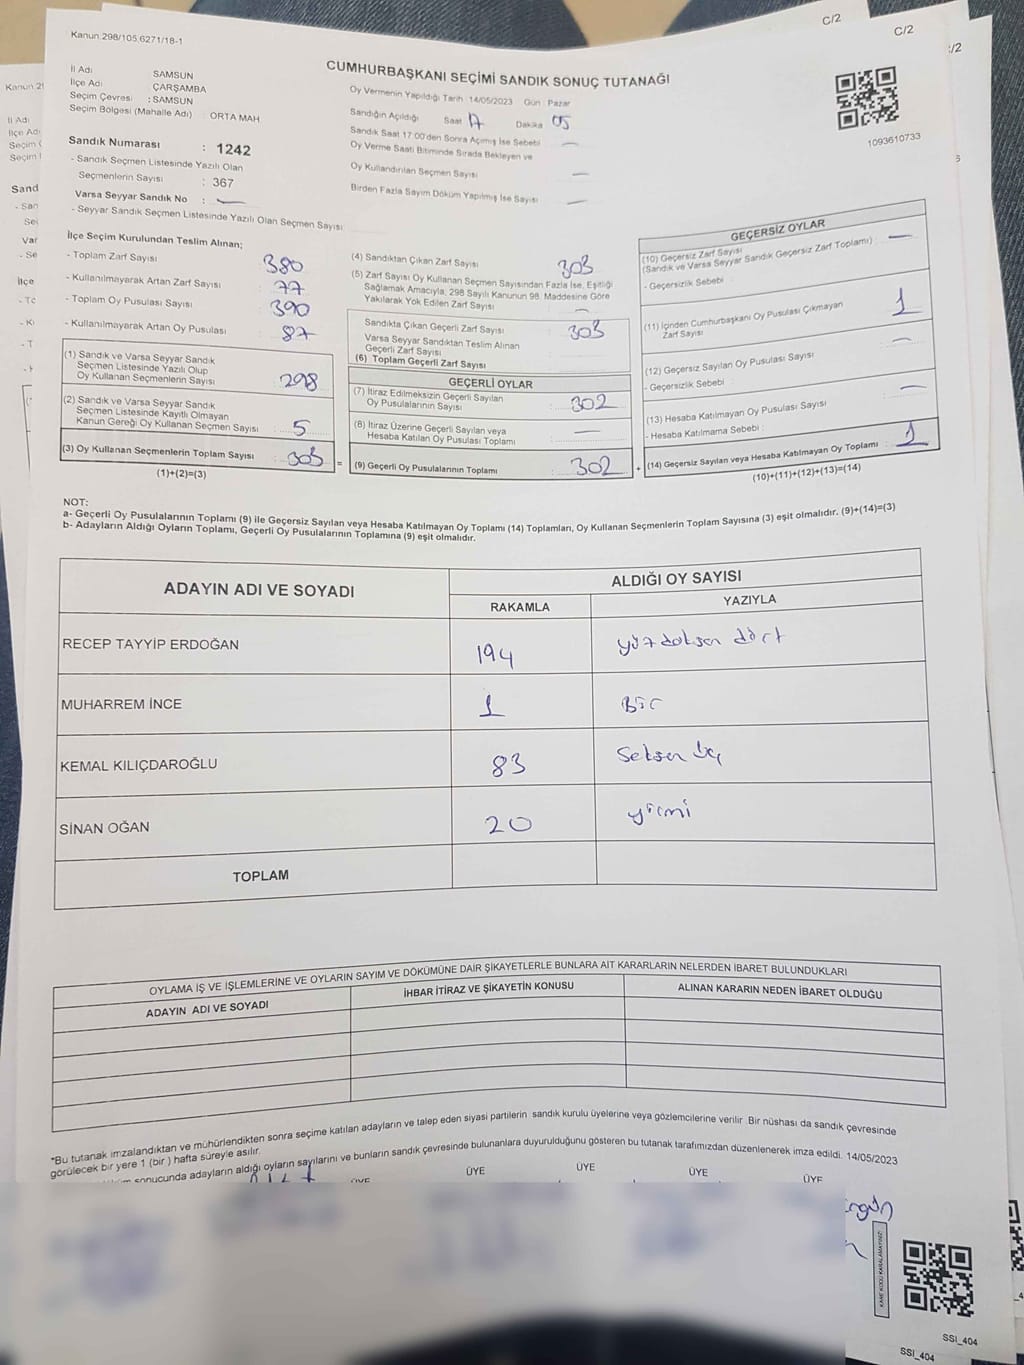 C/2
C/2
/2
Kanun.298/105,6271/18-1
CUMHURBAŞKANI SEÇİMİ SANDIK SONUÇ TUTANAĞI
İl Adı SAMSUN
İlçe Adı ÇARŞAMBA
Seçim Çevresi : SAMSUN
Seçim Bölgesi (Mahalle Adı) : ORTA MAH.
Oy Vermenin Yapıldığı Tarih : 14/05/2023 Gün : Pazar
Sandığın Açıldığı Saat 17 Dakika 05
Sandık Saat 17:00'den Sonra Açımış İse Sebebi —
Oy Verme Saati Bitiminde Sırada Bekleyen ve
Oy Kullandırılan Seçmen Sayısı —
Birden Fazla Sayım Döküm Yapılmış İse Sayısı —
1093610733
Sandık Numarası : 1242
- Sandık Seçmen Listesinde Yazılı Olan
Seçmenlerin Sayısı : 367
Varsa Seyyar Sandık No : —
- Seyyar Sandık Seçmen Listesinde Yazılı Olan Seçmen Sayısı
İlçe Seçim Kurulundan Teslim Alınan;
- Toplam Zarf Sayısı 380
- Kullanılmayarak Artan Zarf Sayısı 77
- Toplam Oy Pusulası Sayısı 390
- Kullanılmayarak Artan Oy Pusulası 87
(1) Sandık ve Varsa Seyyar Sandık
Seçmen Listesinde Yazılı Olup
Oy Kullanan Seçmenlerin Sayısı 298
(2) Sandık ve Varsa Seyyar Sandık
Seçmen Listesinde Kayıtlı Olmayan
Kanun Gereği Oy Kullanan Seçmen Sayısı 5
(3) Oy Kullanan Seçmenlerin Toplam Sayısı 303 =
(1)+(2)=(3)
(4) Sandıktan Çıkan Zarf Sayısı 303
(5) Zarf Sayısı Oy Kullanan Seçmen Sayısından Fazla İse, Eşitliği
Sağlamak Amacıyla, 298 Sayılı Kanunun 98. Maddesine Göre
Yakılarak Yok Edilen Zarf Sayısı —
Sandıkta Çıkan Geçerli Zarf Sayısı 303
Varsa Seyyar Sandıktan Teslim Alınan
Geçerli Zarf Sayısı
(6) Toplam Geçerli Zarf Sayısı
GEÇERLİ OYLAR
(7) İtiraz Edilmeksizin Geçerli Sayılan
Oy Pusulalarının Sayısı 302
(8) İtiraz Üzerine Geçerli Sayılan veya
Hesaba Katılan Oy Pusulası Toplamı —
(9) Geçerli Oy Pusulalarının Toplamı 302 +
GEÇERSİZ OYLAR
(10) Geçersiz Zarf Sayısı
(Sandık ve Varsa Seyyar Sandık Geçersiz Zarf Toplamı) : —
- Geçersizlik Sebebi
(11) İçinden Cumhurbaşkanı Oy Pusulası Çıkmayan
Zarf Sayısı 1
(12) Geçersiz Sayılan Oy Pusulası Sayısı —
- Geçersizlik Sebebi :
(13) Hesaba Katılmayan Oy Pusulası Sayısı —
- Hesaba Katılmama Sebebi :
(14) Geçersiz Sayılan veya Hesaba Katılmayan Oy Toplamı 1
(10)+(11)+(12)+(13)=(14)
NOT:
a- Geçerli Oy Pusulalarının Toplamı (9) ile Geçersiz Sayılan veya Hesaba Katılmayan Oy Toplamı (14) Toplamları, Oy Kullanan Seçmenlerin Toplam Sayısına (3) eşit olmalıdır. (9)+(14)=(3)
b- Adayların Aldığı Oyların Toplamı, Geçerli Oy Pusulalarının Toplamına (9) eşit olmalıdır.
ADAYIN ADI VE SOYADI ALDIĞI OY SAYISI
RAKAMLA YAZIYLA
RECEP TAYYİP ERDOĞAN 194 yüzdoksan dört
MUHARREM İNCE 1 Bir
KEMAL KILIÇDAROĞLU 83 Seksen üç
SİNAN OĞAN 20 yirmi
TOPLAM
OYLAMA İŞ VE İŞLEMLERİNE VE OYLARIN SAYIM VE DÖKÜMÜNE DAİR ŞİKAYETLERLE BUNLARA AİT KARARLARIN NELERDEN İBARET BULUNDUKLARI
ADAYIN ADI VE SOYADI İHBAR İTİRAZ VE ŞİKAYETİN KONUSU ALINAN KARARIN NEDEN İBARET OLDUĞU
*Bu tutanak imzalandıktan ve mühürlendikten sonra seçime katılan adayların ve talep eden siyasi partilerin sandık kurulu üyelerine veya gözlemcilerine verilir. Bir nüshası da sandık çevresinde
görülecek bir yere 1 (bir ) hafta süreyle asılır.
sonucunda adayların aldığı oyların sayılarını ve bunların sandık çevresinde bulunanlara duyurulduğunu gösteren bu tutanak tarafımızdan düzenlenerek imza edildi. 14/05/2023
ÜYE ÜYE ÜYE ÜYE ÜYE
KARE KODU KARALAMAYINIZ
SSI_404
SSI_404